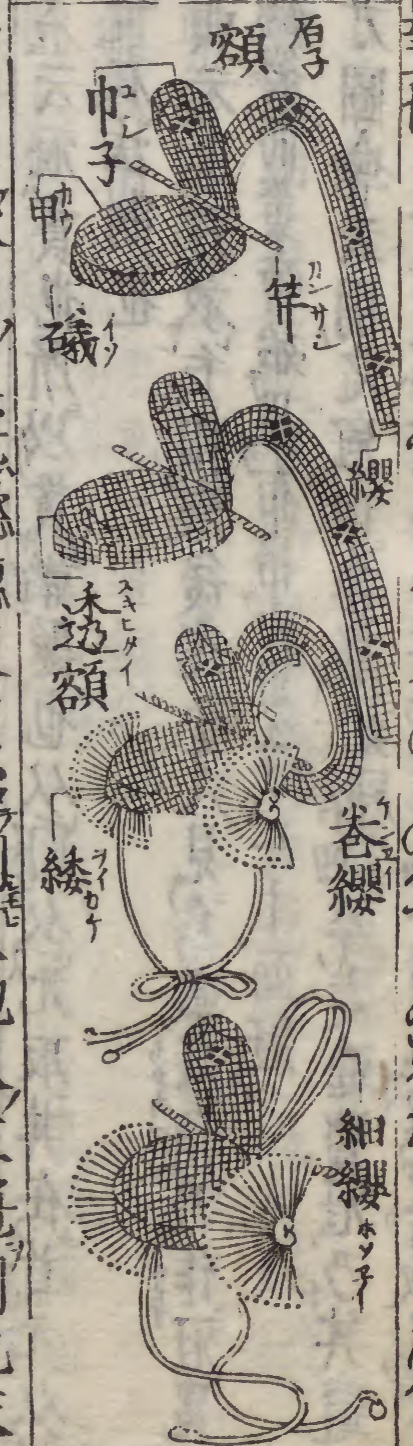 厚額
巾子
コシ
甲
カウ
磯
イソ
笄
カンサシ
纓
透額
スキヒタイ
巻纓
ケンエイ
緌
ヲイカケ
細纓
ホソエイ